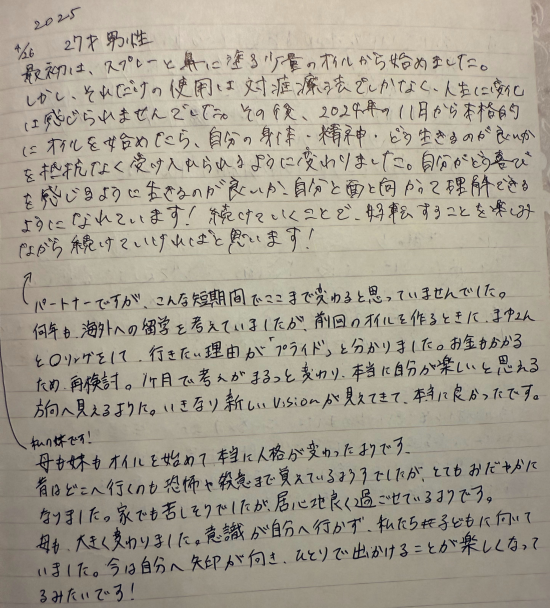 2025
4/26 27才 男性
最初は、スプレーと鼻に塗る少量のオイルから始めました。
しかし、それだけの使用は対症療法でしかなく、人生に変化
は感じられませんでした。その後、2024年の11月から本格的
にオイルを始めたら、自分の身体・精神・どう生きるのが良いか
を抵抗なく受け入れられるように変わりました。自分がどう喜び
を感じるように生きるのが良いか、自分と面と向かって理解できる
ようになれています!続けていくことで、好転することを楽しみ
ながら続けていければと思います!
パートナーですが、こんな短期間でここまで変わると思っていませんでした。
何年も、海外への留学を考えていましたが、前回のオイルを作るときに、まゆみさん
とOリングをして、行きたい理由が「プライド」と分かりました。お金もかかる
ため、再検討。1ヶ月で考えがまるっと変わり、本当に自分が楽しいと思える
方向へ見えるようだ。いきなり新しいvisionが見えてきて、本当に良かったです。
私の妹です!
母も妹もオイルを始めて本当に人格が変わったようです。
昔はどこへ行くのも恐怖や まで覚えているようすでしたが、とてもおだやかに
なりました。家でも苦しそうでしたが、居心地良く過ごせているようです。
母も、大きく変わりました。意識が自分へ行かず、私たち子どもに向いて
いました。今は自分へ矢印が向き、ひとりで出かけることが楽しくなって
るみたいです!